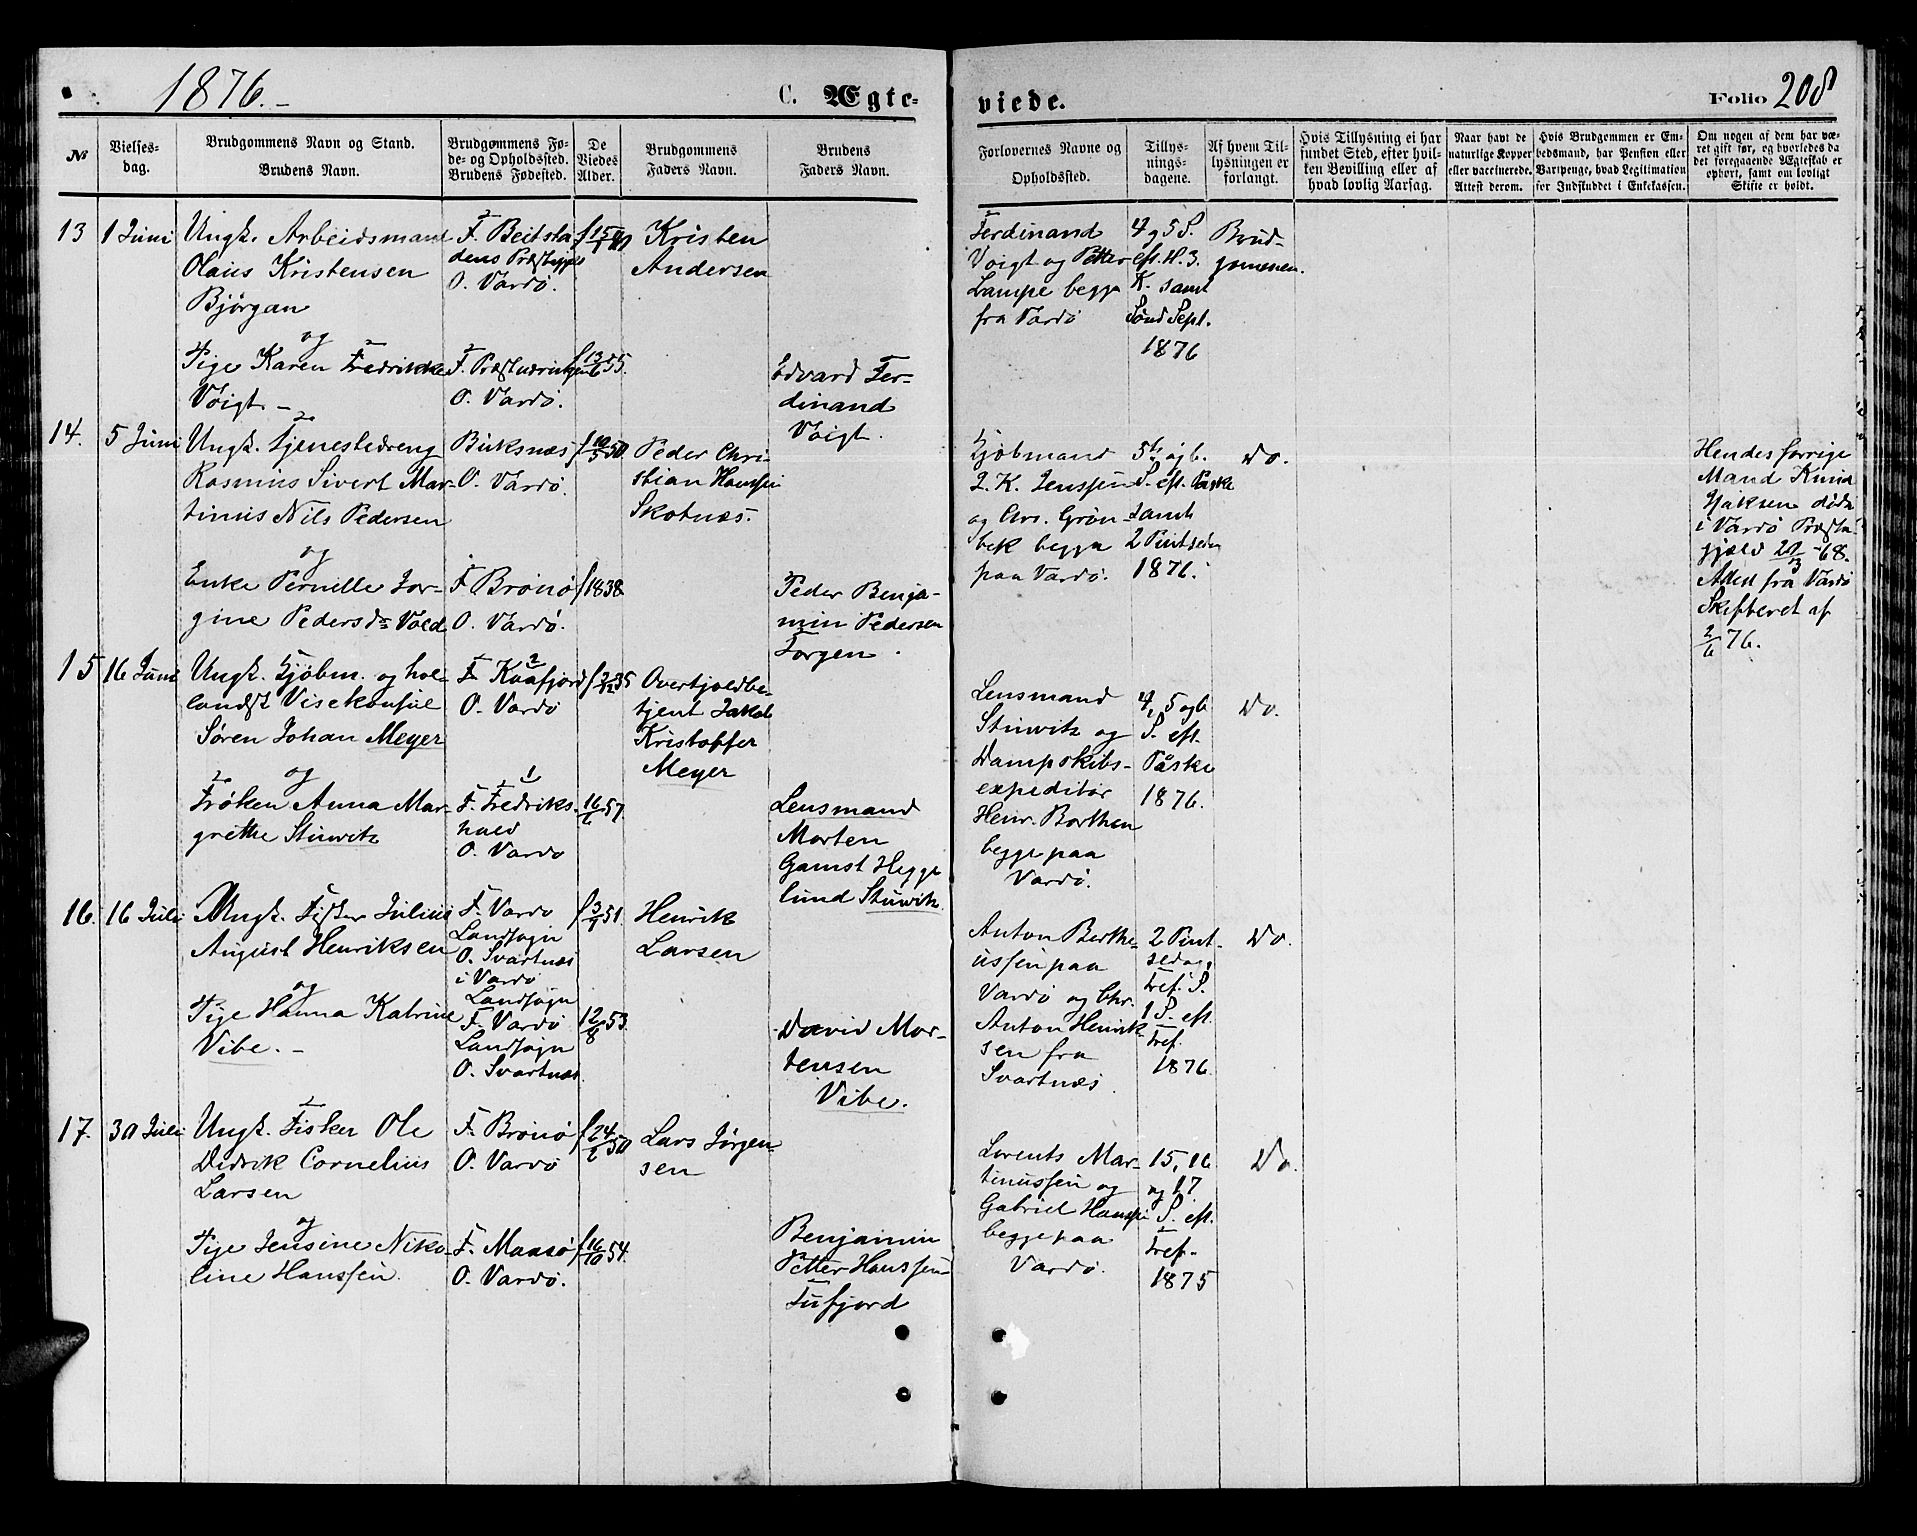 1876.-
C. Ægte-
viede.
Folio 208
№
Vielses-
dag.
Brudgommens Navn og Stand.
Brudens Navn.
Brudgommens Fø-
de- og Opholdssted.
Brudens Fødested.
De
Viedes
Alder.
Brudgommens
Faders Navn.
Brudens
Faders Navn.
Forlovernes Navne og
Opholdssted.
Tillys-
nings-
dagene.
Af hvem Til-
lysningen er
forlangt.
Hvis Tillysning ei har
fundet Sted, efter hvil-
ken Bevilling eller af
hvad lovlig Aarsag.
Naar havt de
naturlige Kopper
eller vaccinerede.
Attest derom.
Hvis Brudgommen er Em-
bedsmand, har Pension eller
Vartpenge, hvad Legitimation
for Indskuddet i Enkekassen.
Om nogen af dem har væ-
ret gift før, og hvorledes da
det foregaaende Ægteskab er
ophørt, samt om lovligt
Skifte er holdt.
13
1 Juni
Ungk. Arbeidsmand
Olaus Kristensen
Bjørgan
og
Pige Karen Fredrikke
Voigt. -
F. Beitsta
dens Præstegjld
O. Vardø.
F.
O. Vardø.
f 13/6 55.
Kristen
Andersen
Edvard Fer-
dinand
Voigt.
Ferdinand
Voigt og Petter
Lampe begge
fra Vardø
4 g 5 S.
eft. H. 3.
K. samt
Sønd Sept.
1876
Brud-
gommen.
14.
5 Juni
Ungk. Tjenestedreng
Rasmus Sivert Mar-
tinus Nils Pedersen
og
Enke Pernelle Jør-
gine Pedersdr Vold
Buksnæs
O. Vardø.
F Brønø
O. Vardø.
f 10/5 50.
f 1838
Peder Chri-
stian Hanssen
Skotnæs.
Peder Benja-
min Pedersen
Torgen.
Kjøbmand
J. K. Jenssen
og Chr. Grøn-
bek begge
paa Vardø.
5te og 6.
S. eft. Paske
samt
2 Pintsedag
1876.
Do.
Hendes forrige
Mand Knud
Isaksen døde
i Vardø Præste-
gjæld -68.
Attest fra Vardø
Skifteret af
2/6 76.
15
16 Juni
Ungk. Kjøbm. og hol-
landsk Visekonsul
Søren Johan Meyer
og
Frøken Anna Mar-
grethe Stuwitz
F. Kaafjord
O. Vardø
F. Fredriks-
hald
O. Vardø
f 2/12 35
16/6 57.
Overtjoldbe-
tjent Jakob
Kristoffer
Meyer
Lensmand
Morten
Gamst Hegge
lund Stuwitz.
Lensmand
Stuwitz og
Dampskibs-
expeditør
Henr. Borthen
begge paa
Vardø.
4, 5 og 6
S. eft.
Påske
1876.
Do.
16.
16 Juli
Ungk. Fisker Julius
August Henriksen
og
Pige Hanna Katrine
Vibe. -
F. Vardø
Landsogn
O. Svartnæs
i Vardø
Landsogn
F. Vardø
Landsogn
O. Svartnæs
f 3/9 51.
12/8 53.
Henrik
Larsen
David Mor-
tensen
Vibe.
Anton Berthe-
ussen paa
Vardø og Chr.
Anton Henrik-
sen fra
Svartnæs
2 Pint-
sedag,
Tref. S.
1 S. eft.
Tref.
1876.
Do.
17.
30 Juli
Ungk. Fisker Ole
Didrik Cornelius
Larsen
og
Pige Jensine Niko-
line Hanssen.
F. Brønø
O. Vardø
F. Maasø
O. Vardø.
f 24/6 50
f 16/10 54.
Lars Jørgen-
sen
Benjamin
Petter Hanssen
Tufjord
Lorents Mar-
tinussen og
Gabriel Hanssen
begge paa
Vardø.
15, 16
og 17
S. eft.
Tref.
1875
Do.